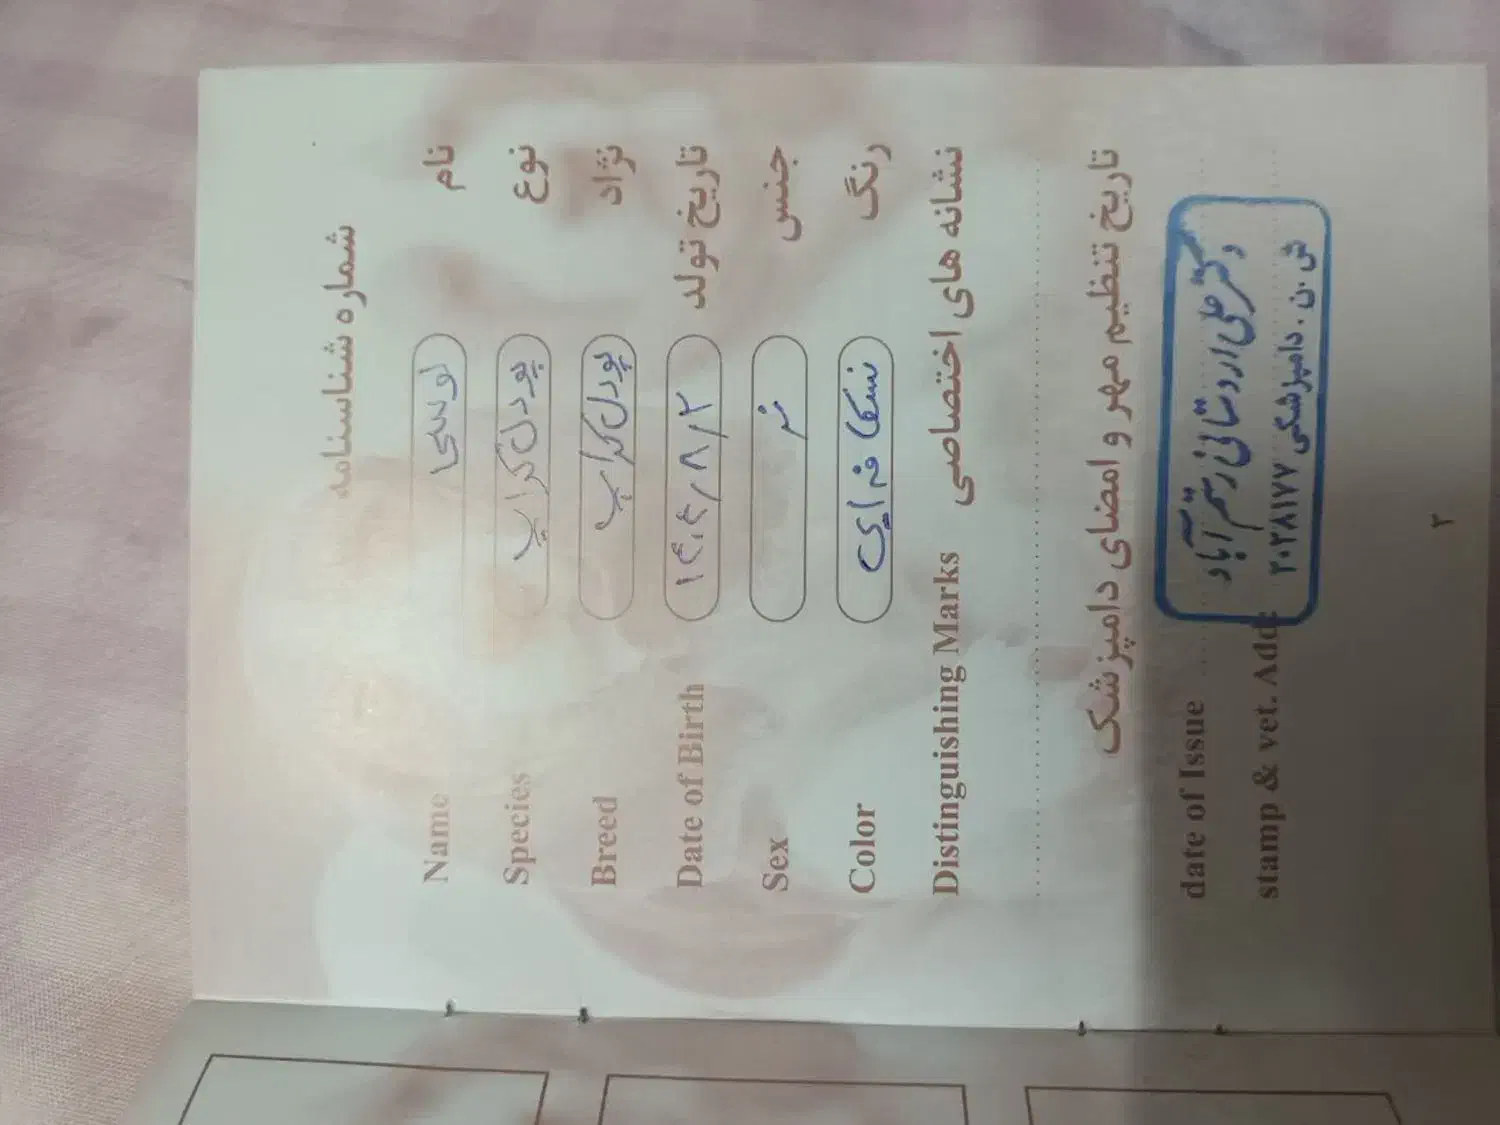 شماره شناسنامه
نام لوسی Name
نوع پودل کراپ Species
نژاد پودل کراپ Breed
تاریخ تولد ۱۴۰۴/۸/۲ Date of Birth
جنس نر Sex
رنگ نسکافه ایی Color
نشانه های اختصاصی Distinguishing Marks
تاریخ تنظیم مهر و امضای دامپزشک
date of Issue
stamp & vet. Add:
دکتر علی اردستانی رستم آباد
ش.ن. دامپزشکی ۲۰۲۸۱۷۷
۲